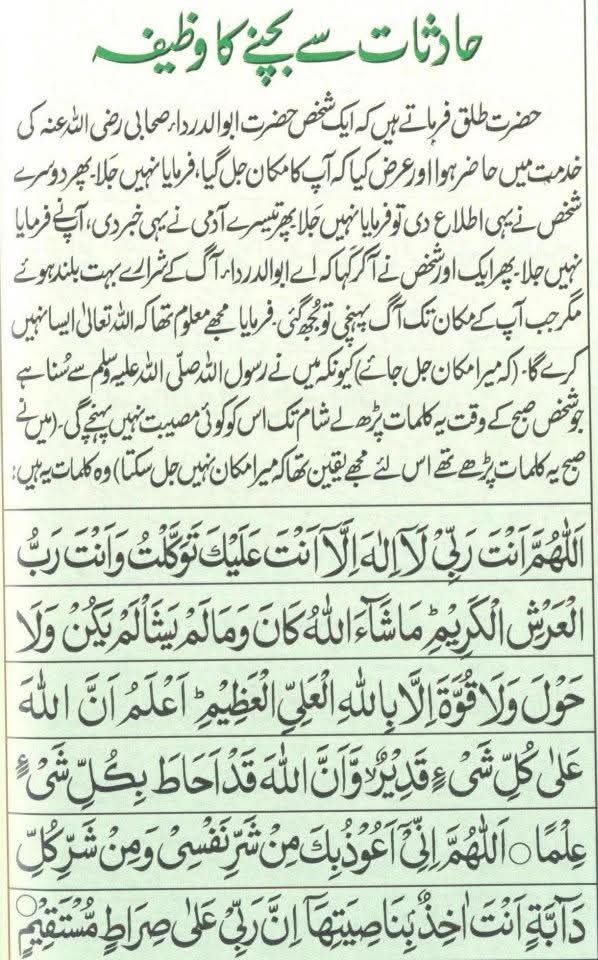 حادثات سے بچنے کا وظیفہ
حضرت طلق فرماتے ہیں کہ ایک شخص حضرت ابوالدرداء صحابی رضی اللہ عنہ کی
خدمت میں حاضر ہوا اور عرض کیا کہ آپ کا مکان جل گیا، فرمایا نہیں جلا۔ پھر دوسرے
شخص نے یہی اطلاع دی تو فرمایا نہیں جلا پھر تیسرے آدمی نے یہی خبر دی، آپ نے فرمایا
نہیں جلا۔ پھر ایک اور شخص نے آکر کہا کہ اے ابوالدرداء آگ کے شرارے بہت بلند ہوئے
مگر جب آپ کے مکان تک آگ پہنچی تو بجھ گئی۔ فرمایا مجھے معلوم تھا کہ اللہ تعالیٰ ایسا نہیں
کرے گا۔ (کہ میرا مکان جل جائے) کیونکہ میں نے رسول اللہ صلی اللہ علیہ وسلم سے سُنا ہے
جو شخص صبح کے وقت یہ کلمات پڑھ لے شام تک اس کو کوئی مصیبت نہیں پہنچے گی۔ (میں نے
صبح یہ کلمات پڑھے تھے اس لئے مجھے یقین تھا کہ میرا مکان نہیں جل سکتا) وہ کلمات یہ ہیں:
اَللّٰهُمَّ اَنْتَ رَبِّیْ لَآ اِلٰهَ اِلَّآ اَنْتَ عَلَيْكَ تَوَكَّلْتُ وَاَنْتَ رَبُّ
الْعَرْشِ الْكَرِيْمِ ؕ مَا شَآءَ اللّٰهُ كَانَ وَمَا لَمْ يَشَأْ لَمْ يَكُنْ وَلَا
حَوْلَ وَلَا قُوَّةَ اِلَّا بِاللّٰهِ الْعَلِیِّ الْعَظِيْمِ ؕ اَعْلَمُ اَنَّ اللّٰهَ
عَلٰی كُلِّ شَیْءٍ قَدِيْرٌ ۙ وَّاَنَّ اللّٰهَ قَدْ اَحَاطَ بِكُلِّ شَیْءٍ
عِلْمًا ○ اَللّٰهُمَّ اِنِّیْ اَعُوْذُ بِكَ مِنْ شَرِّ نَفْسِیْ وَمِنْ شَرِّ كُلِّ
دَآبَّةٍ اَنْتَ اٰخِذٌۢ بِنَاصِيَتِهَا ؕ اِنَّ رَبِّیْ عَلٰی صِرَاطٍ مُّسْتَقِيْمٍ ○